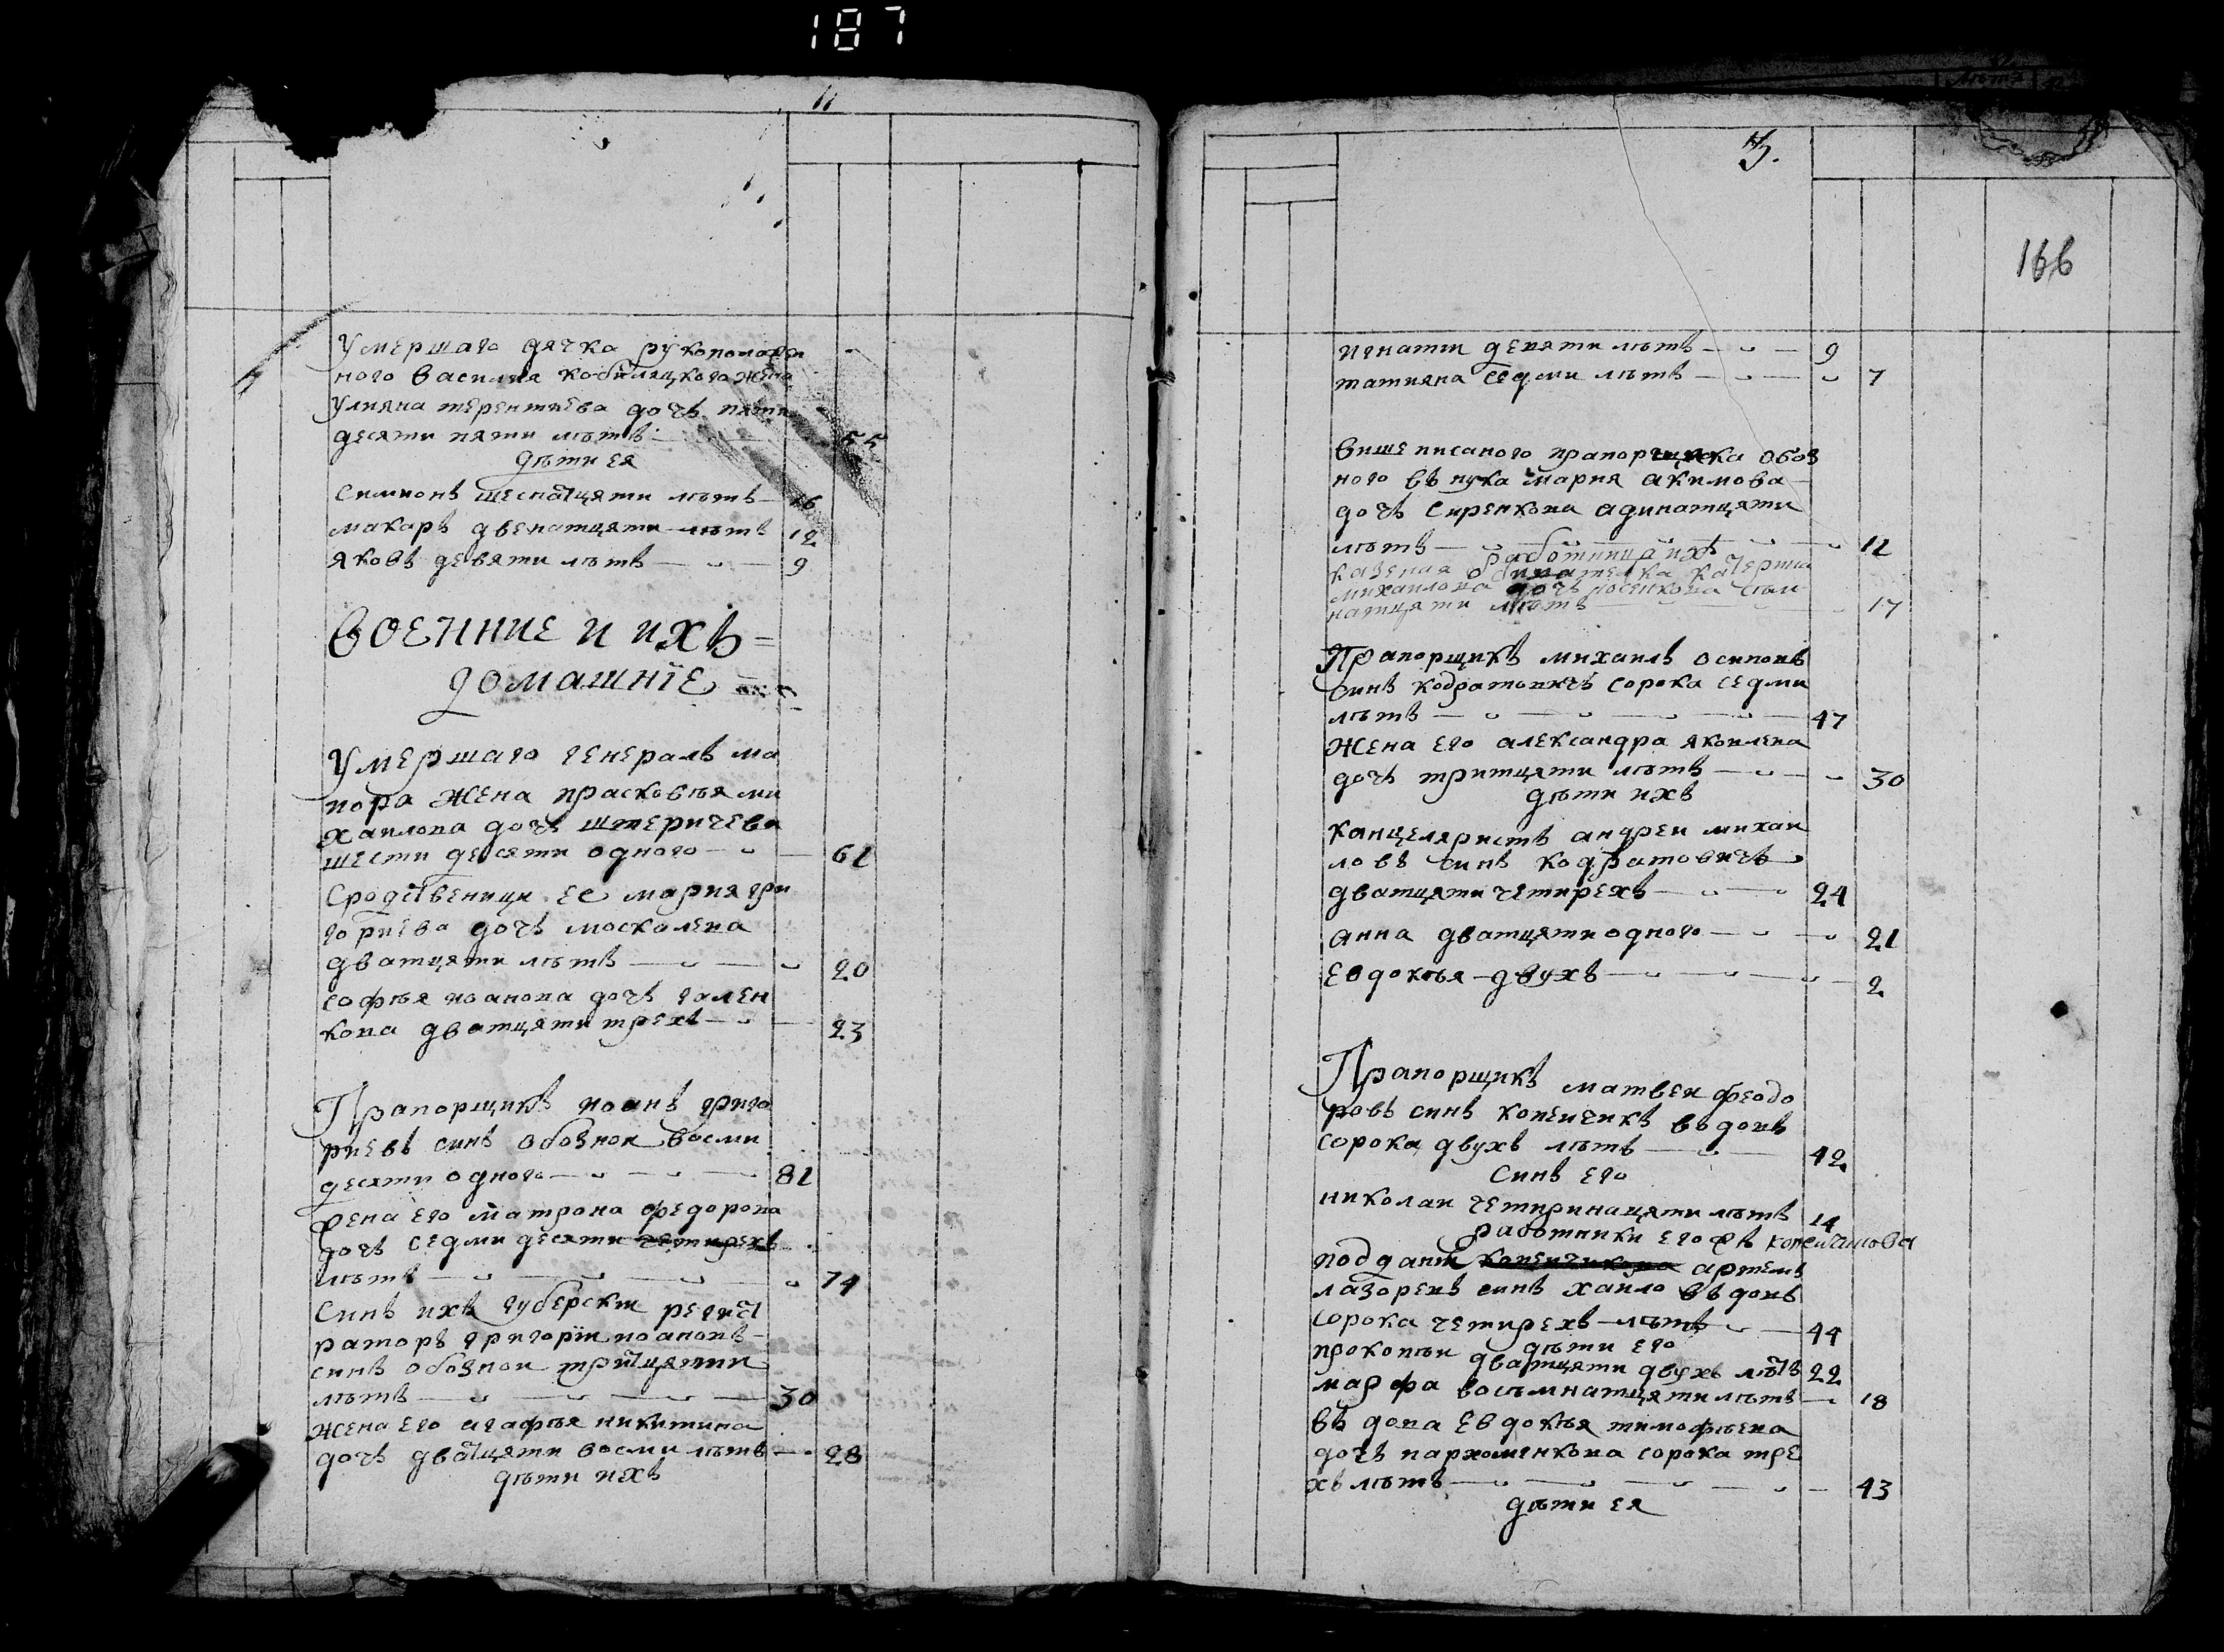 187
Умершаго дячка рукоположен
ного василия кобиляцкого жена
Улияна терентиева дочъ пяти
десяти пяти лѣтъ 55
дѣти ея
Симионъ шеснатцяти лѣтъ 16
макаръ двенатцяти лѣтъ 12
яковъ девяти лѣтъ 9
военние и ихъ
домашніе
Умершаго генералъ ма
иора жена прасковѣя ми
хаилова дочъ штеричева
шести десяти одного 61
Сродственици ее мария гри
гориева дочъ москалева
дватцяти лѣтъ 20
софѣя иоанова дочъ гален
кова дватцяти трехъ 23
Прапорщикъ иоанъ григо
риевъ синъ обознои восми
десяти одного 81
жена его матрона федорова
дочъ седми десяти четирехъ
лѣтъ 74
Синъ ихъ губерскии регист
раторъ григорїи иоановъ
синъ обознои тритцяти
лѣтъ 30
жена его агафѣя никитина
дочъ дватцяти восми лѣтъ 28
дѣти ихъ
166
игнатии девяти лѣтъ 9
татияна седми лѣтъ 7
вишеписаного прапорщика обоз
ного внука мария акимова
дочъ Сиренкова адинатцяти
лѣтъ 11
работница ихъ
казеная обивателка катерина
михаилова дочъ седм
натцяти лѣтъ 17
Прапорщикъ михаилъ осиповъ
синъ кодратовичъ сорока седми
лѣтъ 47
жена его александра яковлева
дочъ тритцяти лѣтъ 30
дѣти ихъ
канцеляристъ андреи михаи
ловъ синъ кодратовичъ
дватцяти четирехъ 24
анна дватцяти одного 21
евдокѣя двухъ 2
Прапорщикъ матвеи феодо
ровъ синъ копеичикъ вдовъ
сорока двухъ лѣтъ 42
Синъ его
николаи четиринацяти лѣтъ 14
работники его жъ копеичикова
поддании копеичикова артемъ
лазоревъ синъ хаило вдовъ
сорока четирехъ лѣтъ 44
дѣти его
прокопѣи дватцяти двухъ лѣтъ 22
марфа восъмнатцяти лѣтъ 18
вдова евдокѣя тимофѣева
дочъ пархоменкова сорока тре
хъ лѣтъ 43
дѣти ея